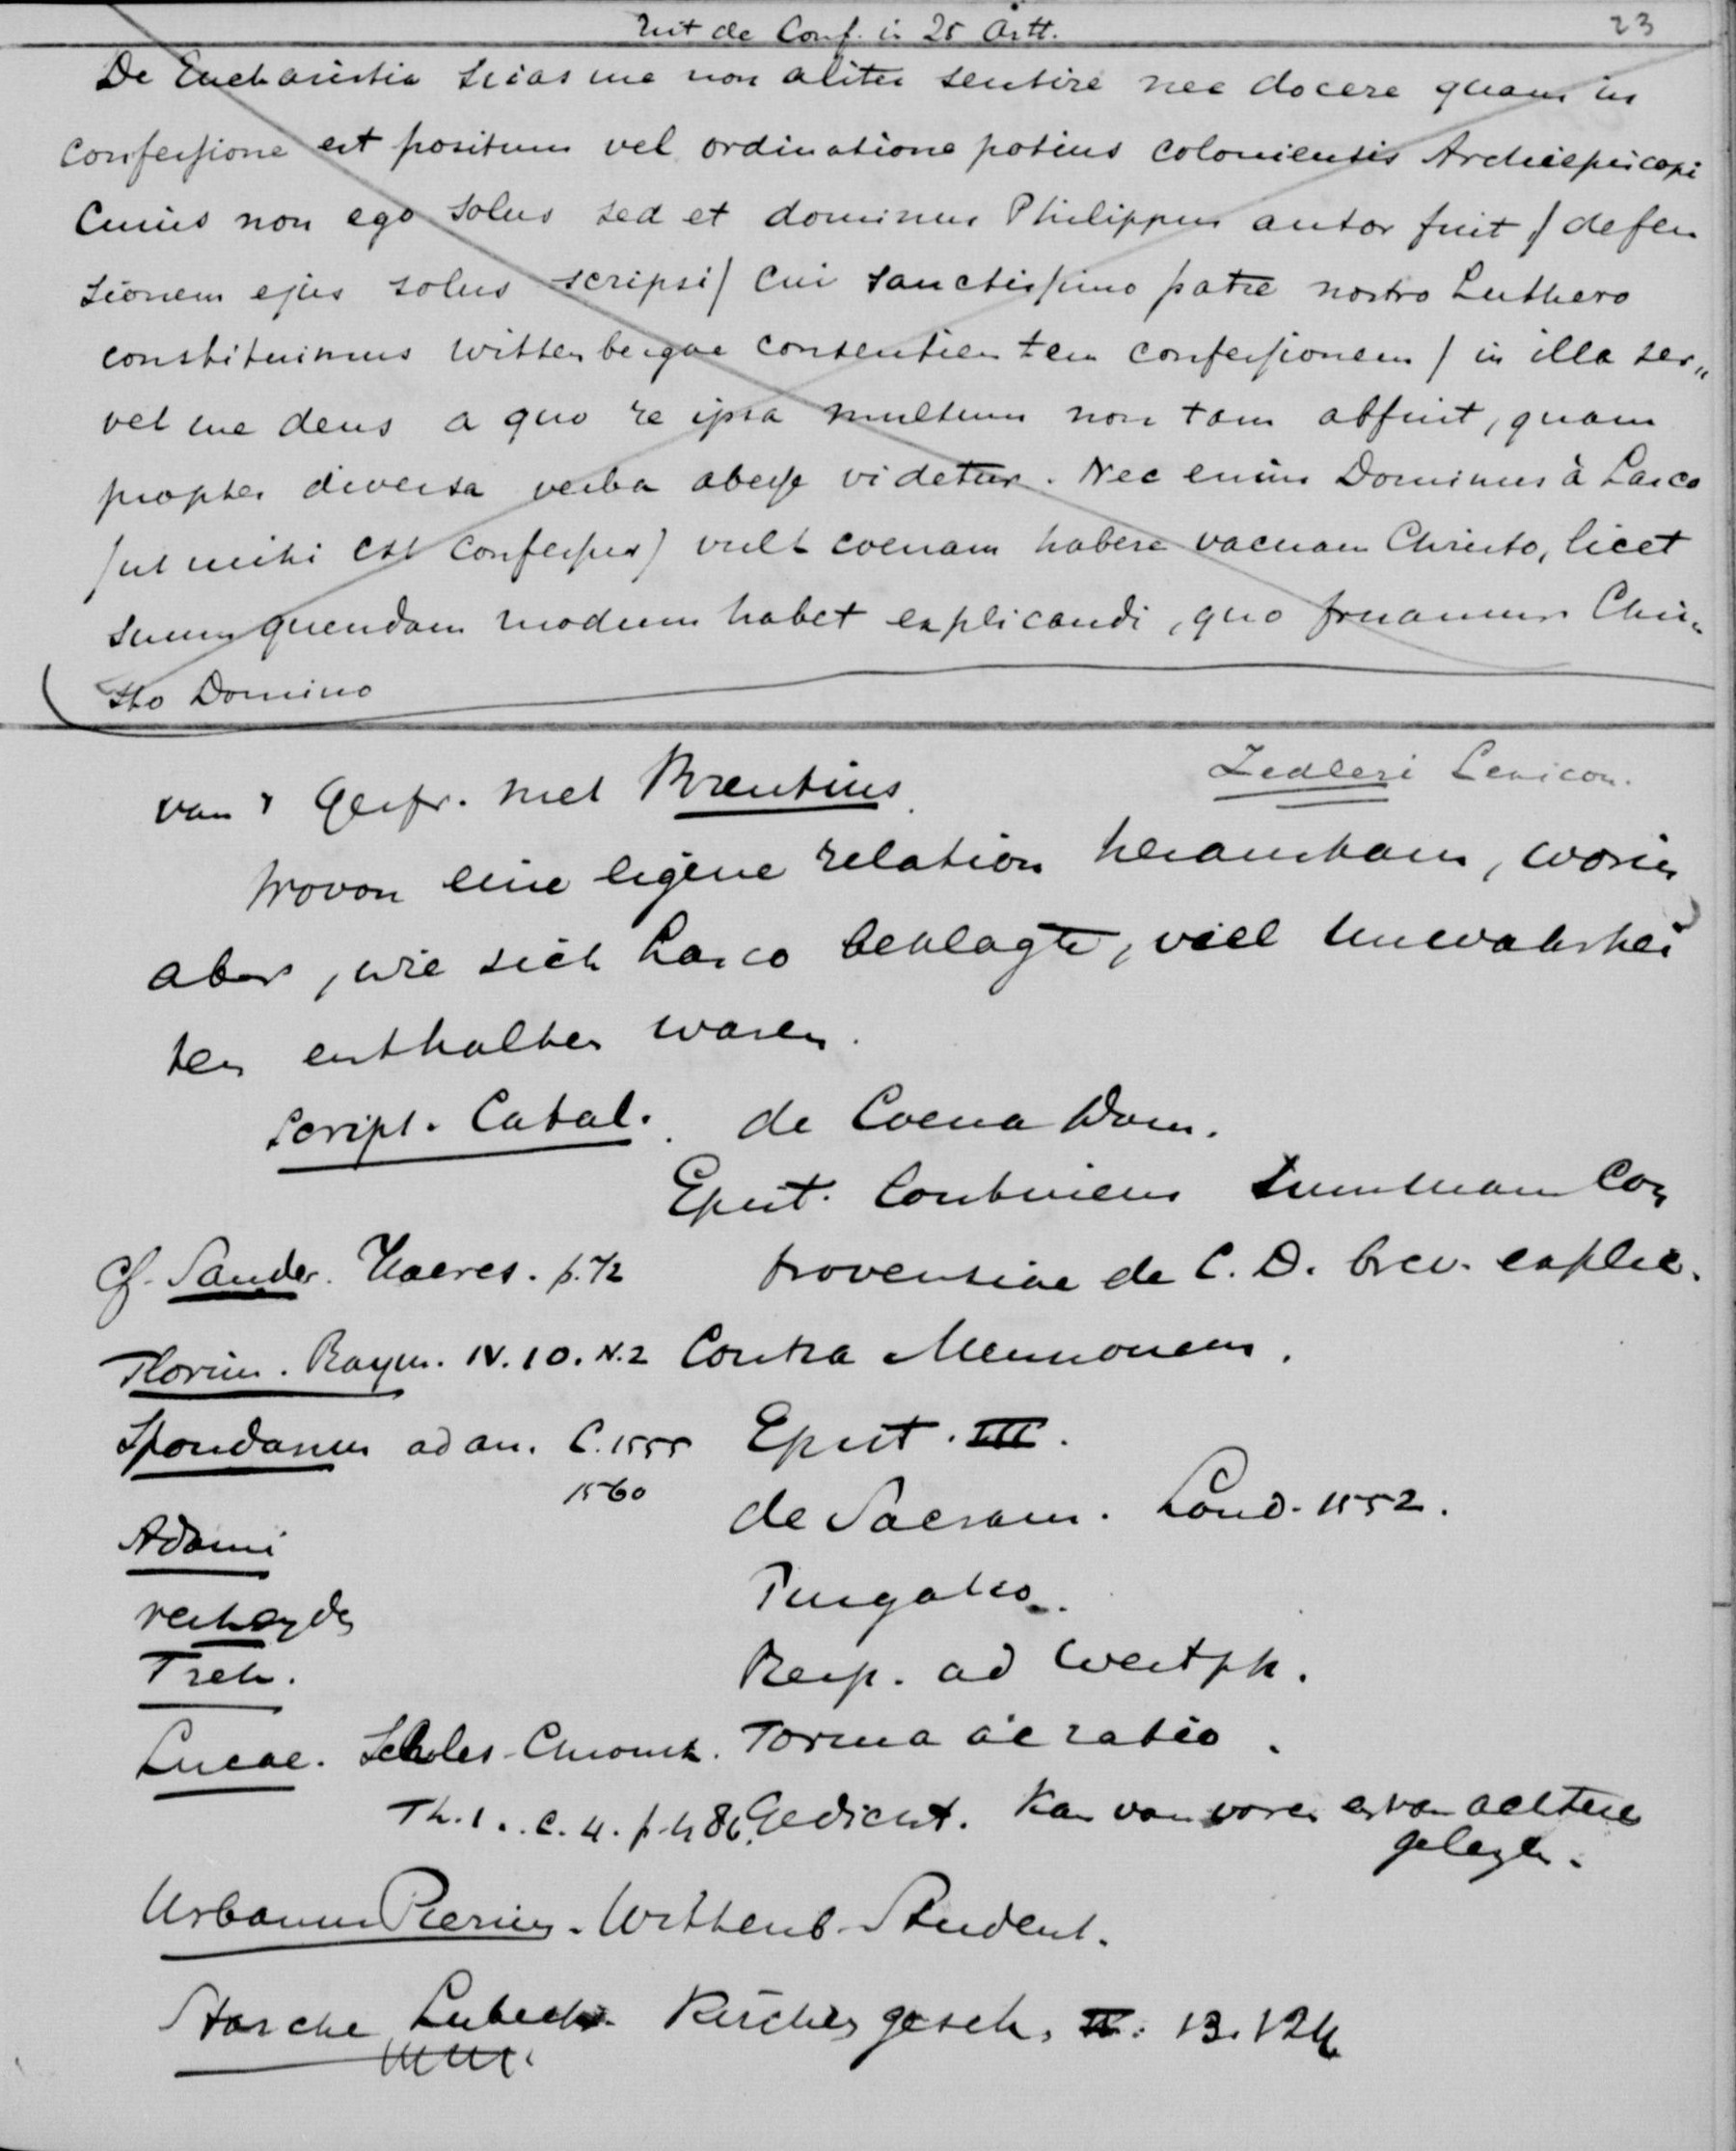 Uit de Conf. in 25 Artt.
23
De Eucharistia scias me non aliter sentire nec docere quam in
confessione est positum vel ordinatione potius coloniensis Archiepiscopi
Cuius non ego solus sed et dominus Philippus autor fuit / defen
sionem ejus solus scripsi / cui sanctissimo patre nostro Luthero
constituimus wittenbergae consentientem confessionem / in illa ser„
vet me deus a quo re ipsa multum non tam abfuit, quam
propter diversa verba abesse videtur. Nec enim Dominus à Lasco
/ut mihi est confessus/ vult coenam habere vacuam Christo, licet
suum quendam modum habet explicandi, quo fruamur Chri„
sto Domino
Zedleri Lexicon.
van 't Gespr. met Brentius
wovon eine eigene relation herauskam, worin
aber, wie sich Lasco beklagte, viel Unwahrhei
ten enthalten waren.
Script. Catal. de Coena Dom.
Epist. continens summam Con
Cf. Sander. Haeres. p. 72 troversiae de C. D. brev. explic.
Florim. Raym. IV. 10. N. 2 Contra Mennonem.
Spondanus ad an. C. 1555 Epist. III.
1560
de Sacram. Lond. 1552.
Adami
Purgatio.
Verheyde
Treh.
Resp. ad Westph.
Lucae. Schles. Chronik. Forma ac ratio.
Th. 1. C. 4. p. 486. Gedicht. Kan van voren en van achteren
gelezen.
Urbanus Pierius. Wittenb. Student.
Starcke Lubeck. Kirchengesch. II. 13. 124